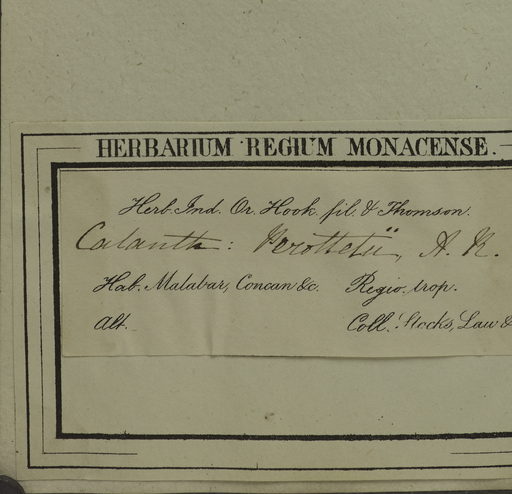 HERBARIUM REGIUM MONACENSE.
Herb. Ind. Or. Hook. fil. & Thomson.
Calanthe: Perottetii, A. R.
Hab. Malabar, Concan &c. Regio. trop.
Alt. Coll. Stocks, Law &